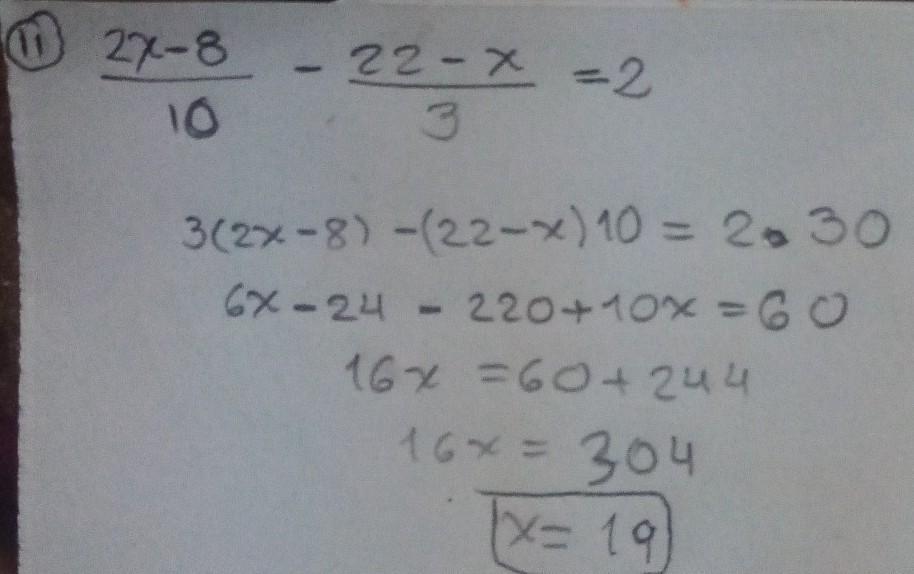 11 (2x-8)/10 - (22-x)/3 = 2
3(2x-8) - (22-x)10 = 2•30
6x-24 - 220+10x = 60
16x = 60+244
16x = 304
x= 19